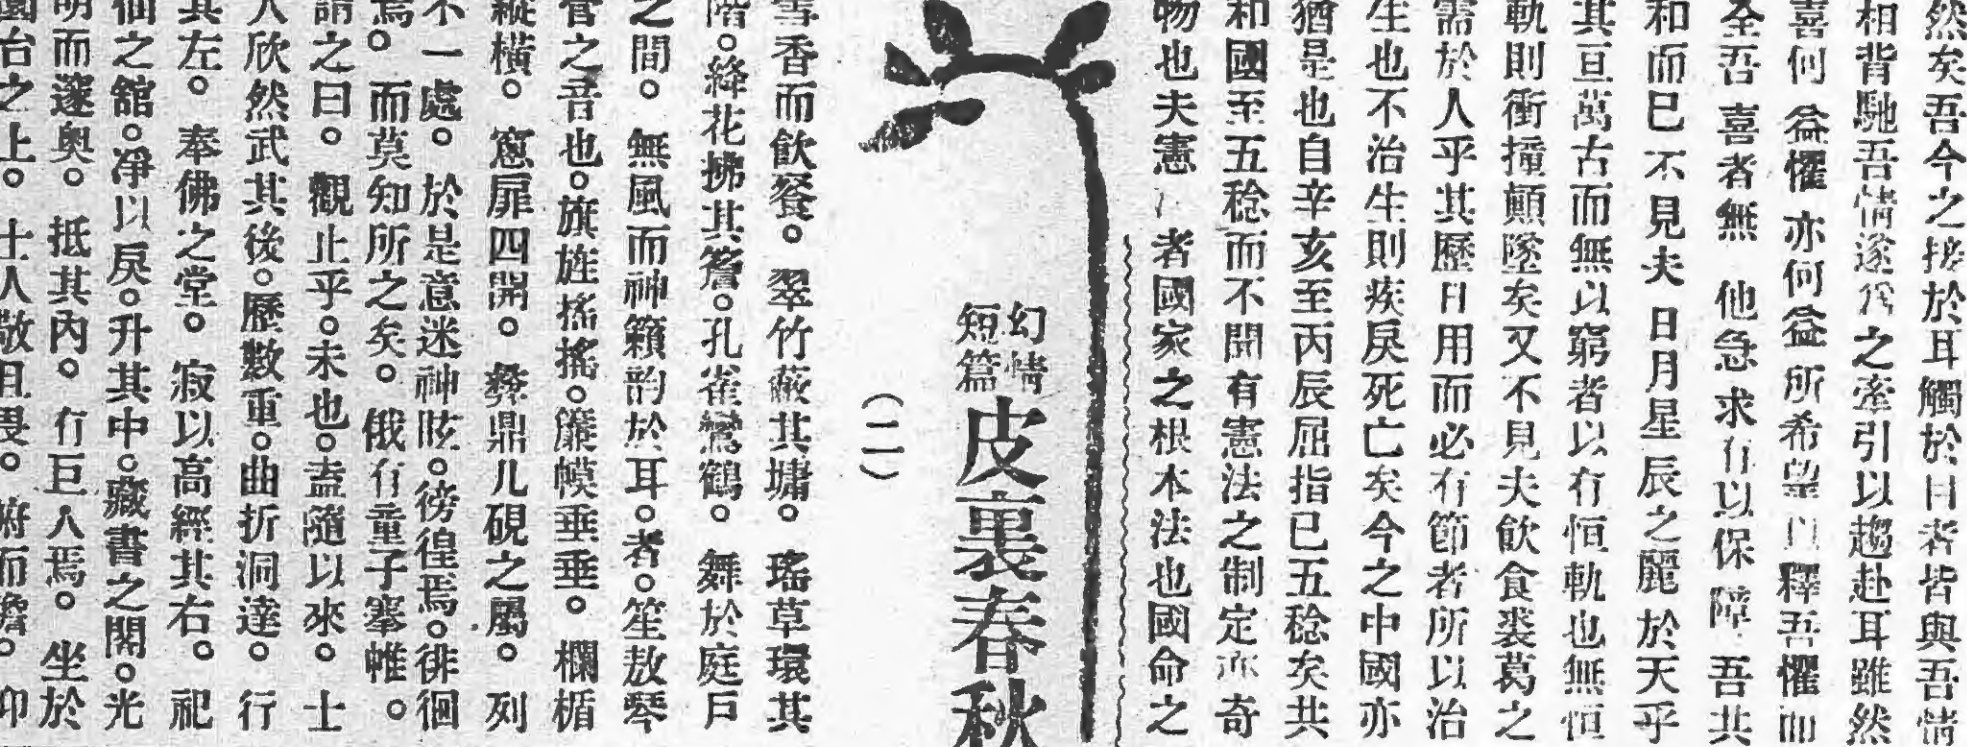 然矣吾今之接於耳觸於目者皆與吾情
相背馳吾情遂為之牽引以趨赴耳雖然
喜何益懼亦何益所希望以釋吾懼而
全吾喜者無他急求有以保障吾共
和而已不見夫日月星辰之麗於天乎
其亘萬古而無以窮者以有恒軌也無恒
軌則衝撞顛墜矣又不見夫飲食裘葛之
需於人乎其歷日用而必有節者所以治
生也不治生則疾戾死亡矣今之中國亦
猶是也自辛亥至丙辰屈指已五稔矣共
和國至五稔而不聞有憲法之制定亦奇
物也夫憲法者國家之根本法也國命之
幻情
短篇
皮裏春秋
(二)
雪香而飲餐。翠竹蔽其墉。瑤草環其
階。絳花拂其簷。孔雀鸞鶴。舞於庭戶
之間。無風而神籟韵於耳。者。笙敖琴
管之音也。旗旌搖搖。簾幙垂垂。欄楯
縱橫。窻扉四開。彝鼎几硯之屬。列
不一處。於是意迷神眩。徬徨焉。徘徊
焉。而莫知所之矣。俄有童子搴帷。
請之曰。觀止乎。未也。盍隨以來。士
人欣然武其後。歷數重。曲折洞達。行
其左。奉佛之堂。寂以高經其右。祀
仙之舘。淨以戾。升其中。藏書之閣。光
明而邃奥。抵其內。有巨人焉。坐於
園台之上。士人敬且畏。俯而瞻。仰